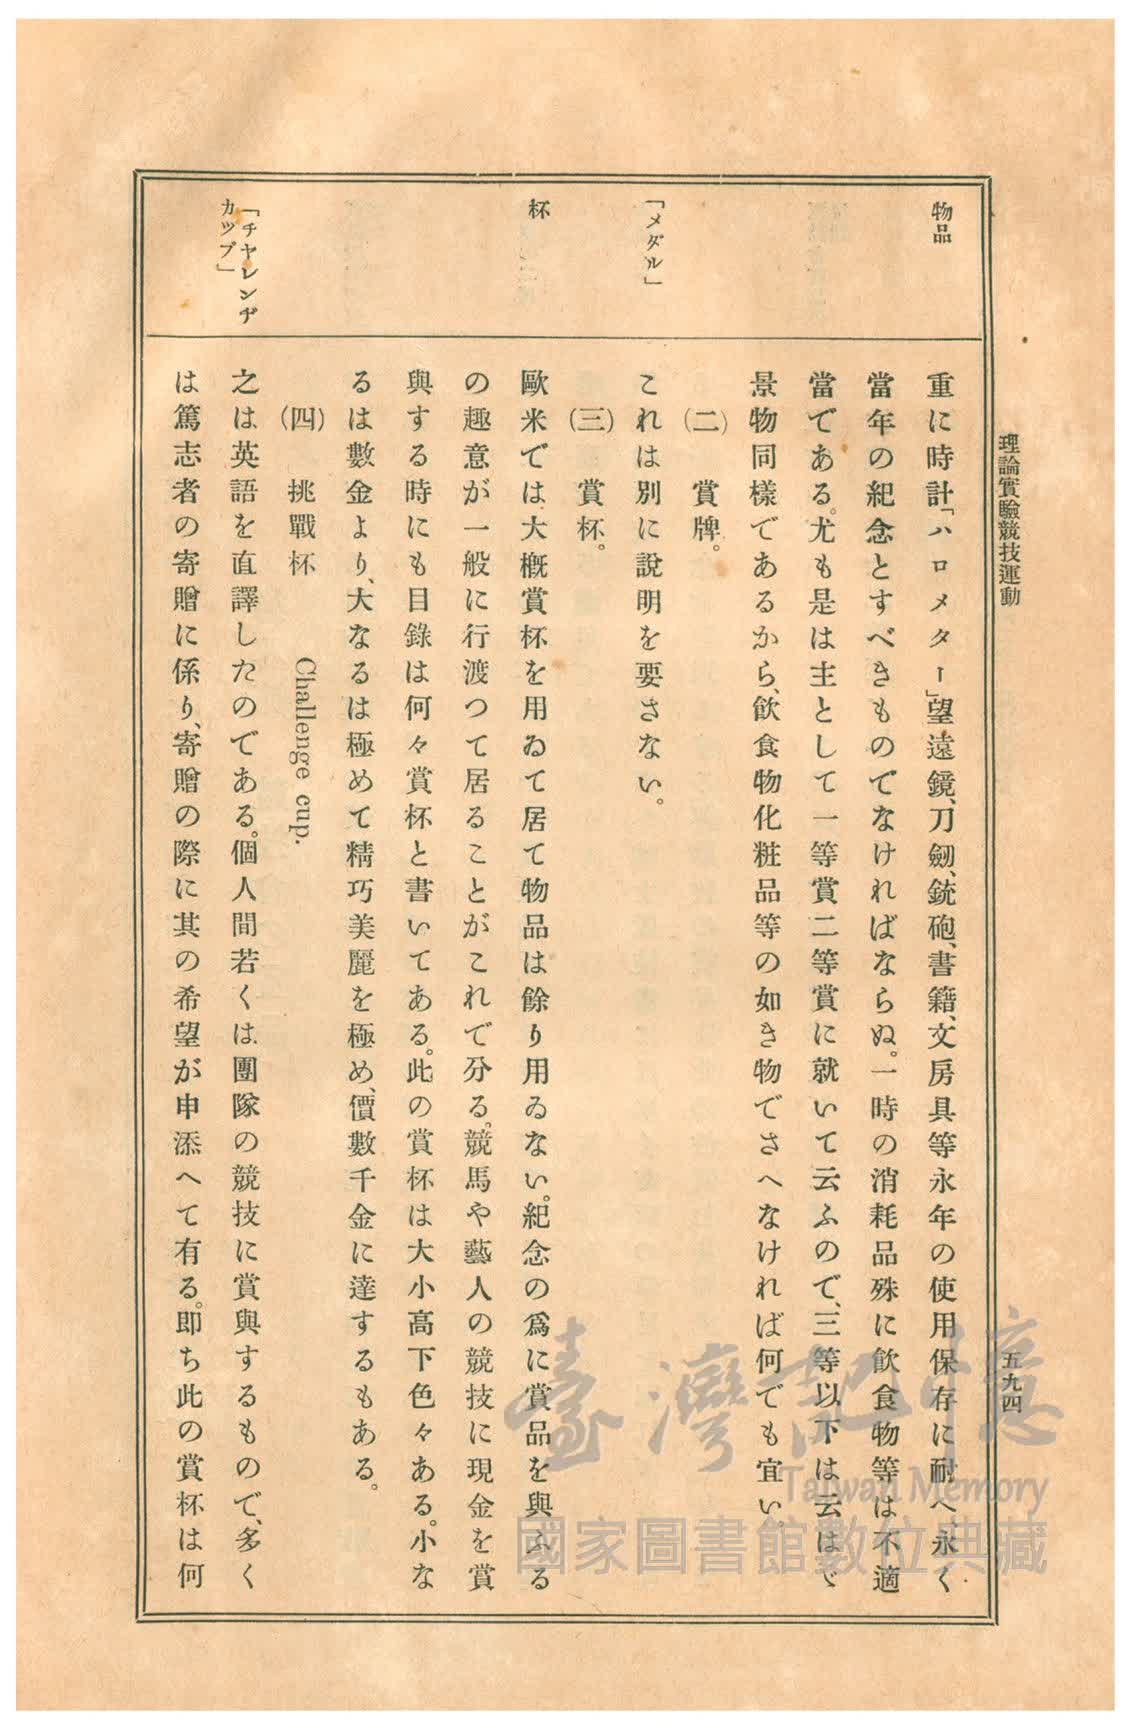 理論實驗競技運動
五九四
物品
「メダル」
杯
「チヤレンヂ
カツプ」
重に時計「ハロメター」望遠鏡、刀劒、銃砲、書籍、文房具等永年の使用保存に耐へ、永く
當年の紀念とすべきものでなければならぬ。一時の消耗品殊に飮食物等は不適
當である。尤も是は主として一等賞二等賞に就いて云ふので、三等以下は云はゞ
景物同樣であるから、飮食物化粧品等の如き物でさへなければ何でも宜い。
(二)　賞牌。
これは別に說明を要さない。
(三)　賞杯。
歐米では大槪賞杯を用ゐて居て物品は餘り用ゐない。紀念の爲に賞品を與ふる
の趣意が一般に行渡つて居ることがこれで分る。競馬や藝人の競技に現金を賞
與する時にも目錄は何々賞杯と書いてある。此の賞杯は大小高下色々ある。小な
るは數金より、大なるは極めて精巧美麗を極め、價數千金に達するもある。
(四)　挑戰杯　Challenge cup.
之は英語を直譯したのである。個人間若くは團隊の競技に賞與するもので、多く
は篤志者の寄贈に係り、寄贈の際に其の希望が申添へて有る。卽ち此の賞杯は何
臺灣記憶
Taiwan Memory
國家圖書館數位典藏